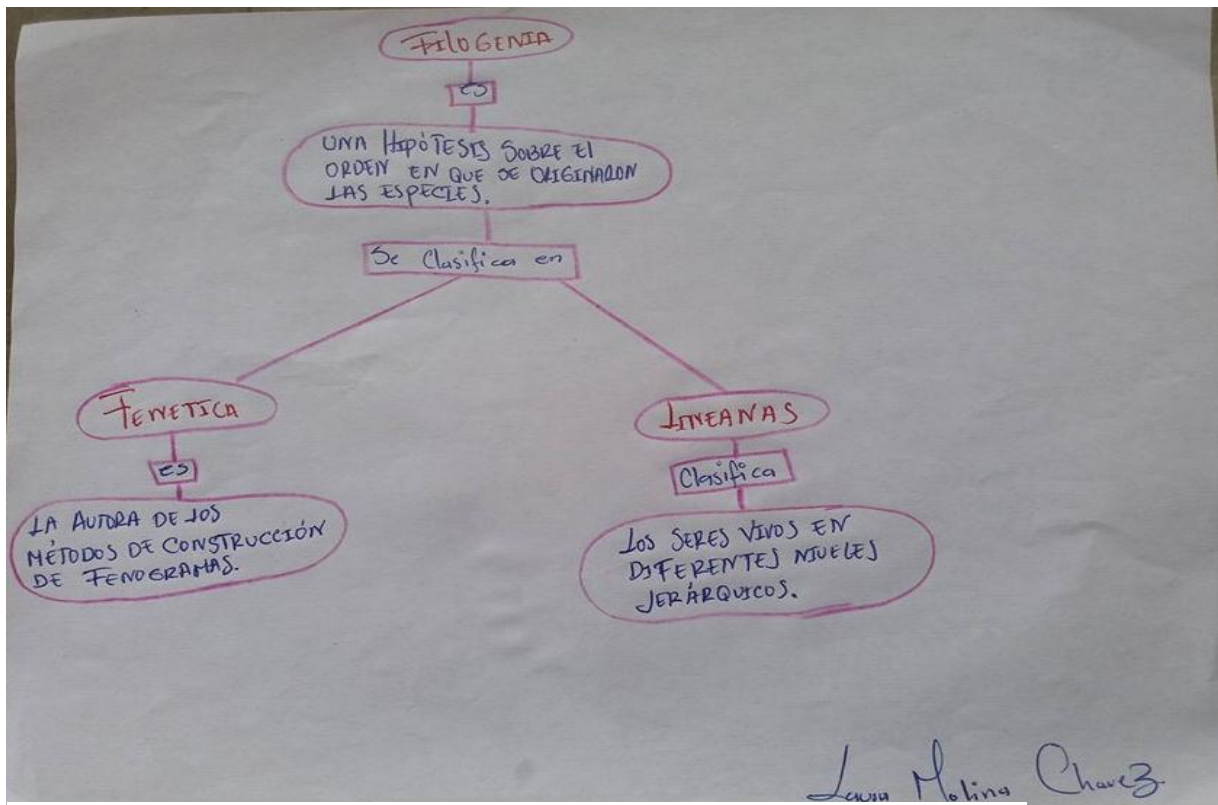 FILOGENIA
es
UNA HIPÓTESIS SOBRE EL
ORDEN EN QUE SE ORIGINARON
LAS ESPECIES.
Se Clasifica en
FENETICA
LINEANAS
es
Clasifica
LA AUTORA DE LOS
MÉTODOS DE CONSTRUCCIÓN
DE FENOGRAMAS.
LOS SERES VIVOS EN
DIFERENTES NIVELES
JERÁRQUICOS.
Laura Molina Chavez